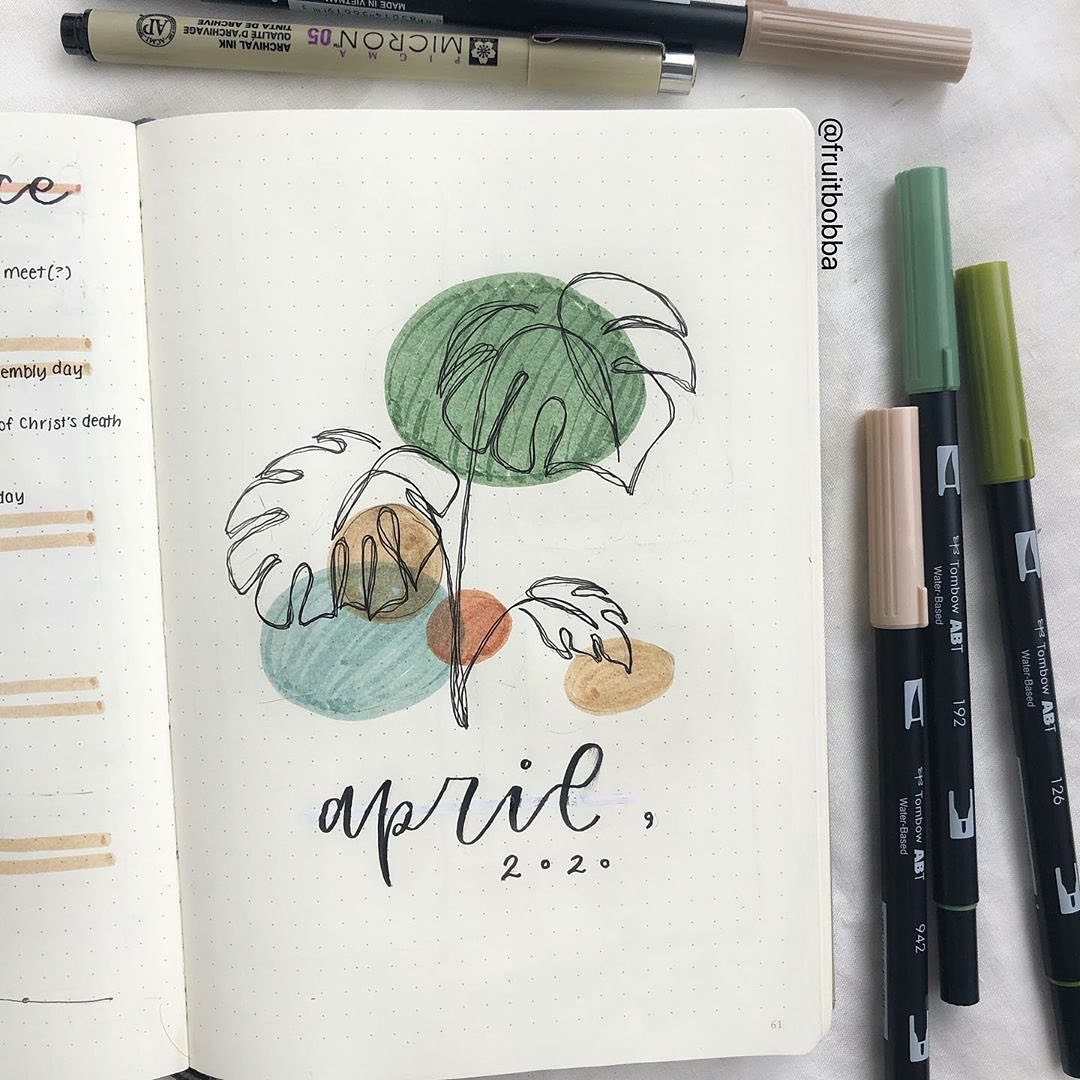 MADE IN VIETNAM
PIGMA
MICRON 05
ARCHIVAL INK
QUALITÉ D'ARCHIVAGE
TINTA DE ARCHIVE
AP
@fruitbobba
ce
meet(?)
embly day
of Christ's death
day
april,
2020
61
Tombow ABT
Water-Based
942
Tombow ABT
Water-Based
192
Tombow ABT
Water-Based
126